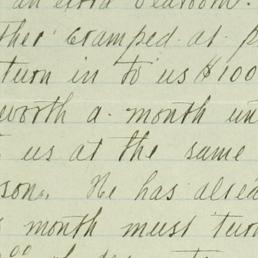 an extra bedroom.
ther cramped at p
turn in to us $100
worth a month un
us at the same
son. He has alrea
month must turn